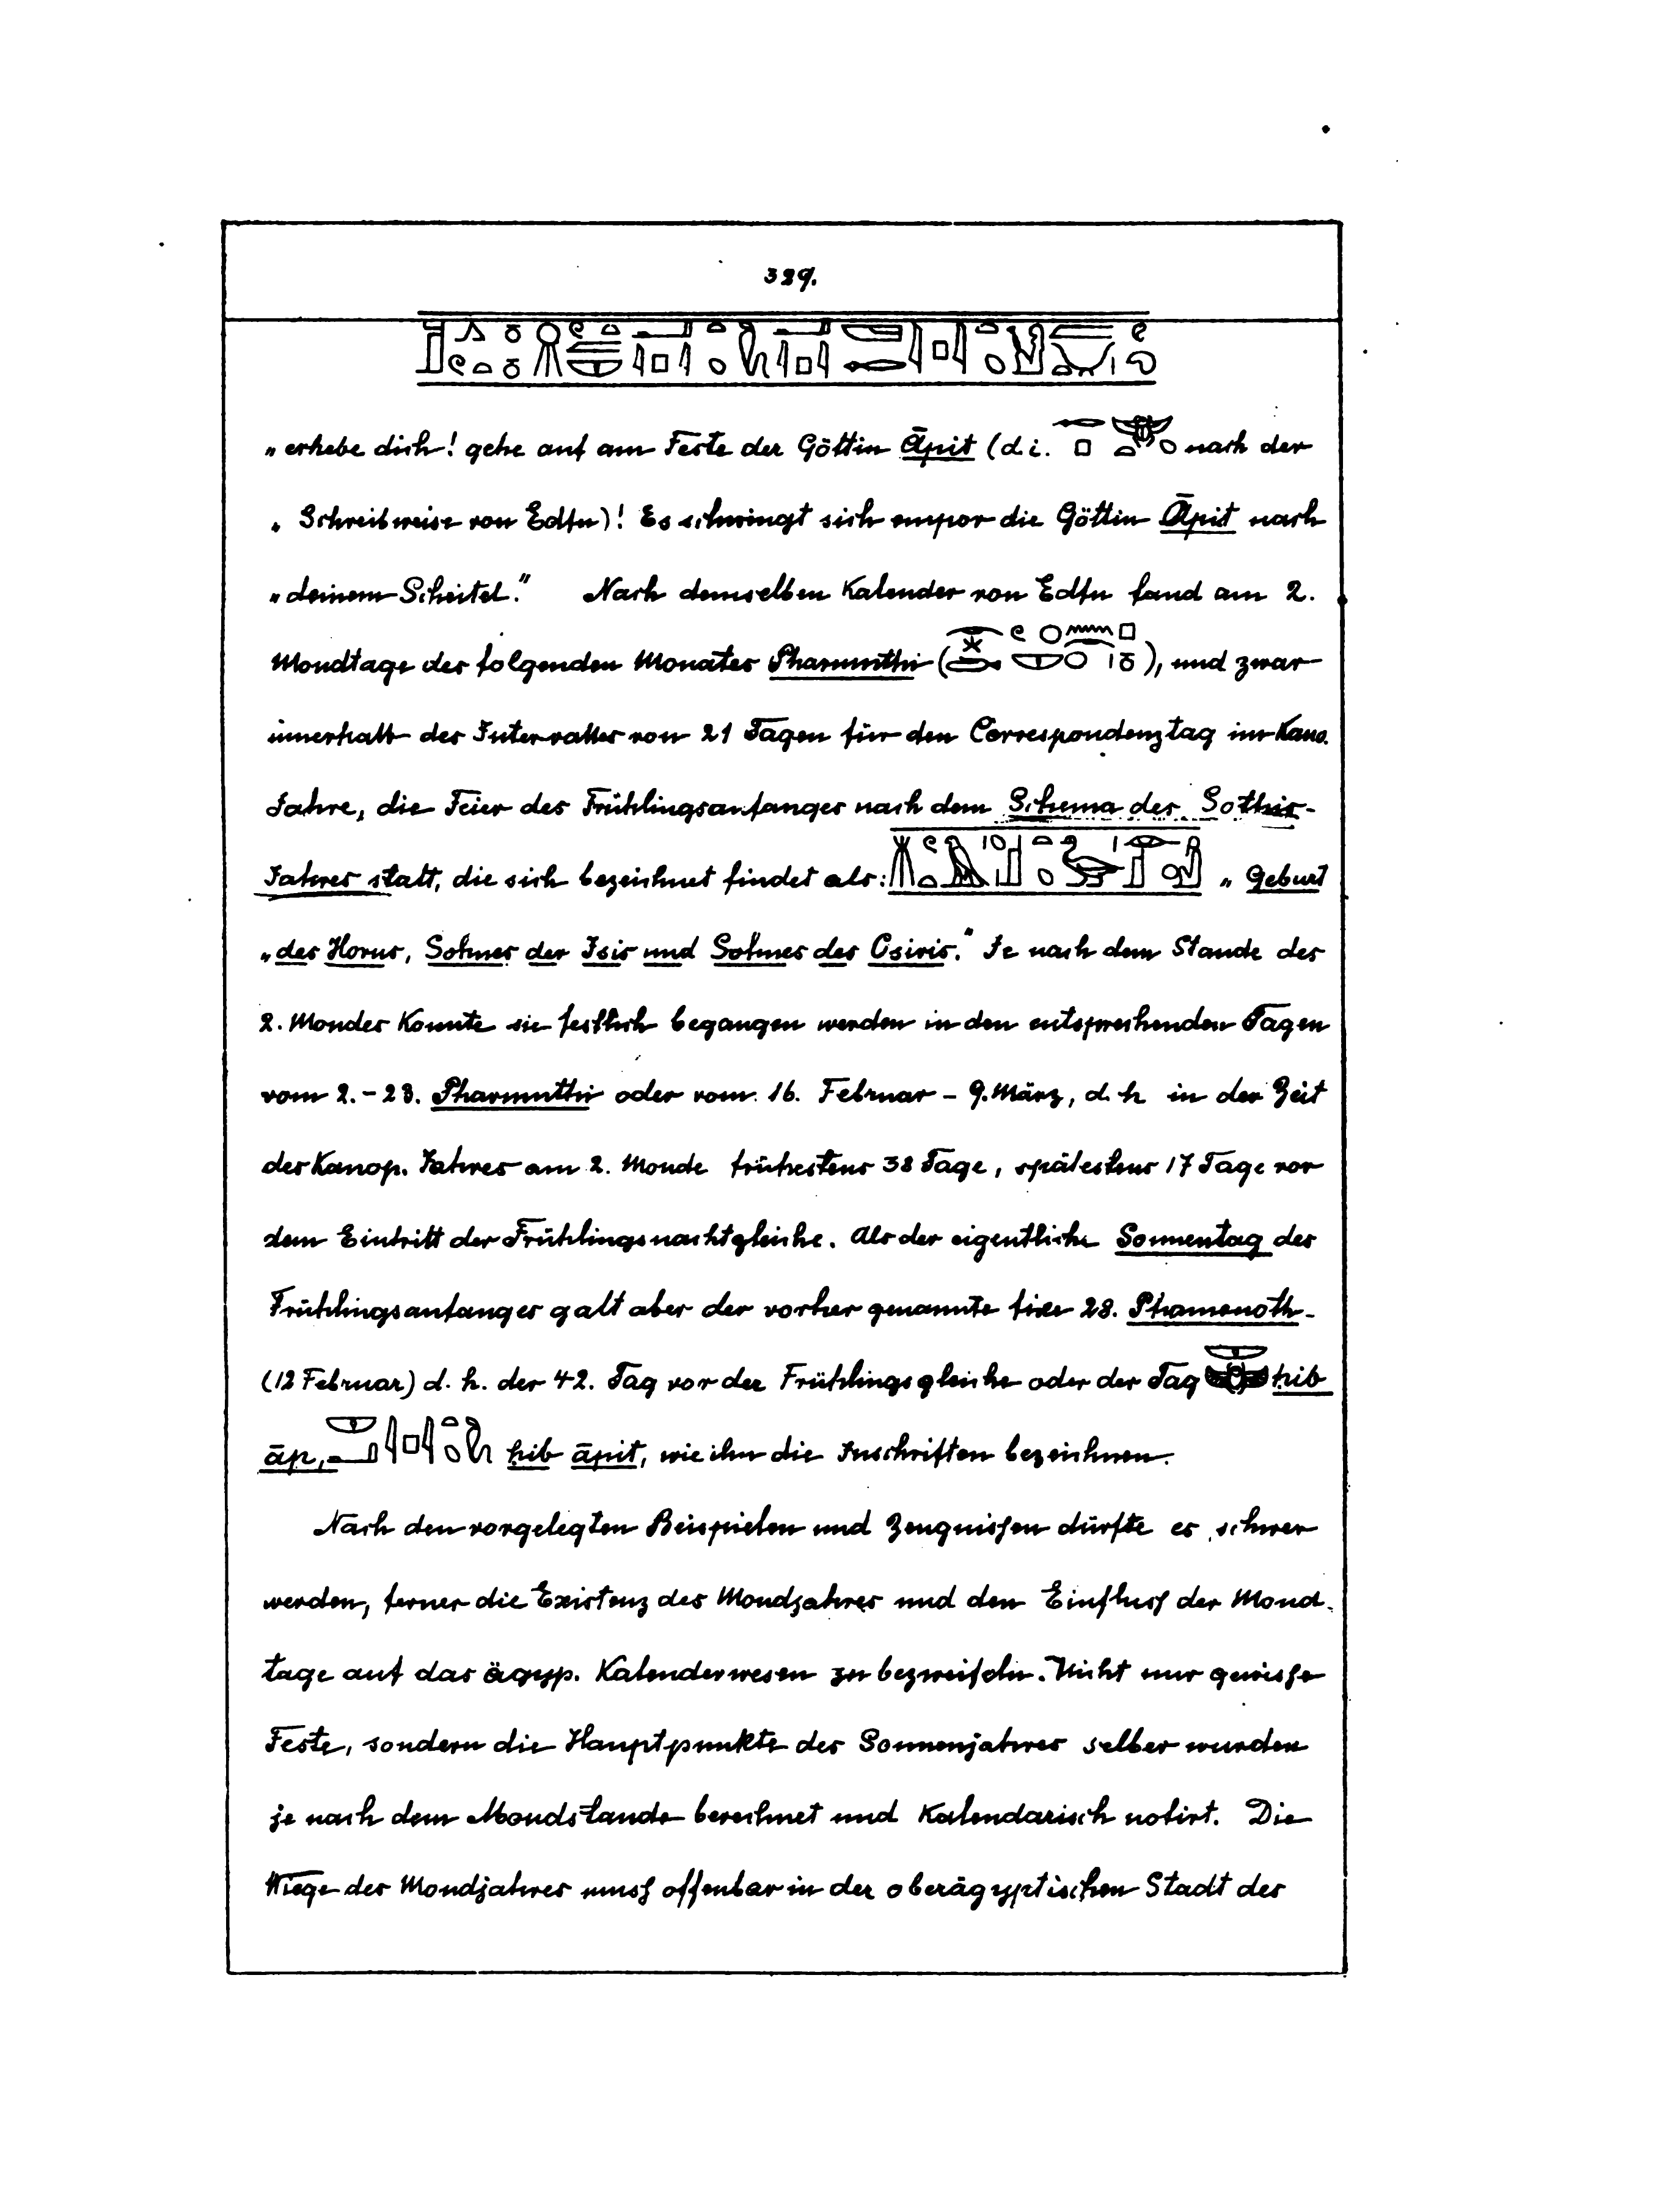 329.
„erhebe dich! gehe auf am Feste der Göttin Āpit (d. i. nach der
„Schreibweise von Edfu)! Es schwingt sich empor die Göttin Āpit nach
„deinem Scheitel.“ Nach demselben Kalender von Edfu fand am 2.
Mondtage des folgenden Monates Pharmuthi ( ), und zwar
innerhalb des Intervalles von 21 Tagen für den Correspondenztag im Kano.
Jahre, die Feier des Frühlingsanfanges nach dem Schema des Sothis-
Jahres statt, die sich bezeichnet findet als: „Geburt
„des Horus, Sohnes der Isis und Sohnes des Osiris.“ Je nach dem Stande des
2. Mondes konnte sie festlich begangen werden in den entsprechenden Tagen
vom 2.-23. Pharmuthi oder vom 16. Februar – 9. März, d. h in der Zeit
des Kanop. Jahres am 2. Monde frühestens 38 Tage, spätestens 17 Tage vor
dem Eintritt der Frühlingsnachtgleiche. Als der eigentliche Sonnentag des
Frühlingsanfanges galt aber der vorher genannte fixe 28. Phamenoth-
(12 Februar) d. h. der 42. Tag vor der Frühlingsgleiche oder der Tag hib
āp, hib āpit, wie ihn die Inschriften bezeichnen.
Nach den vorgelegten Beispielen und Zeugnissen dürfte es schwer
werden, ferner die Existenz des Mondjahres und den Einfluss der Mond-
tage auf das ägyp. Kalenderwesen zu bezweifeln. Nicht nur gewisse
Feste, sondern die Hauptpunkte des Sonnenjahres selber wurden
je nach dem Mondstande berechnet und kalendarisch notirt. Die
Wiege des Mondjahres muss offenbar in der oberägyptischen Stadt des